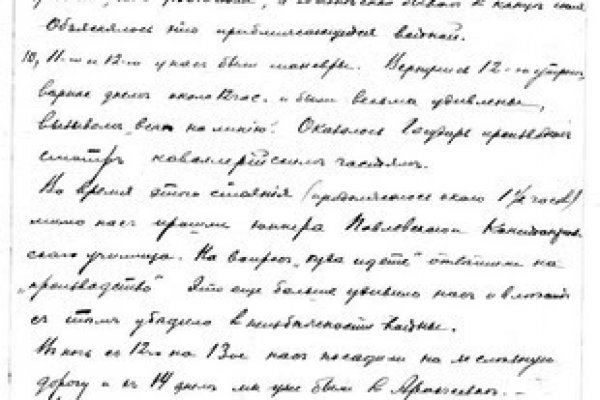 Объяснялось это приближающейся войной.
10, 11-го и 12-го у нас были маневры. Вернулись 12-го утром,
вернее днем около 12 час. и были весьма удивлены,
вызовом "всех на линию". Оказалось Государь производил
смотр кавалерийским частям.
Во время этого стояния (продолжалось около 1½ часов)
мимо нас прошли юнкера Павловского
училища. На вопрос "куда идете" отвечали на
"производство" Это еще больше удивило нас и
с тем убедило в неизбежности войны.
В ночь с 12-го на 13-ое нас посадили на железную
дорогу и 14 днем мы уже были в